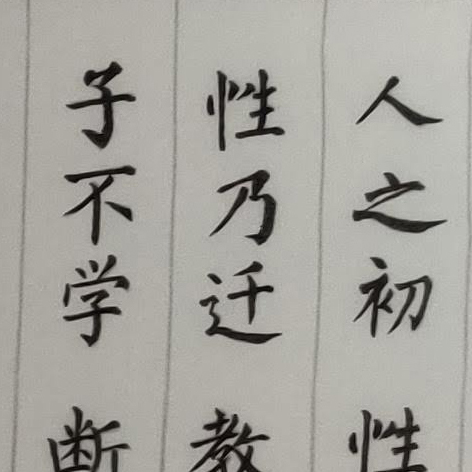 人之初 性
性乃迁 教
子不学 断